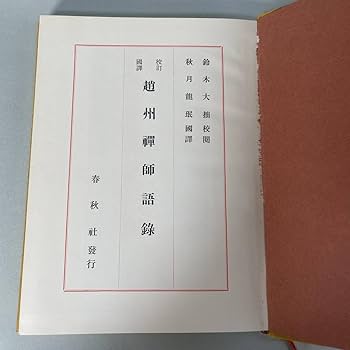 鈴木大拙校閲
秋月龍珉國譯
校訂
國譯
趙州禪師語錄
春秋社發行